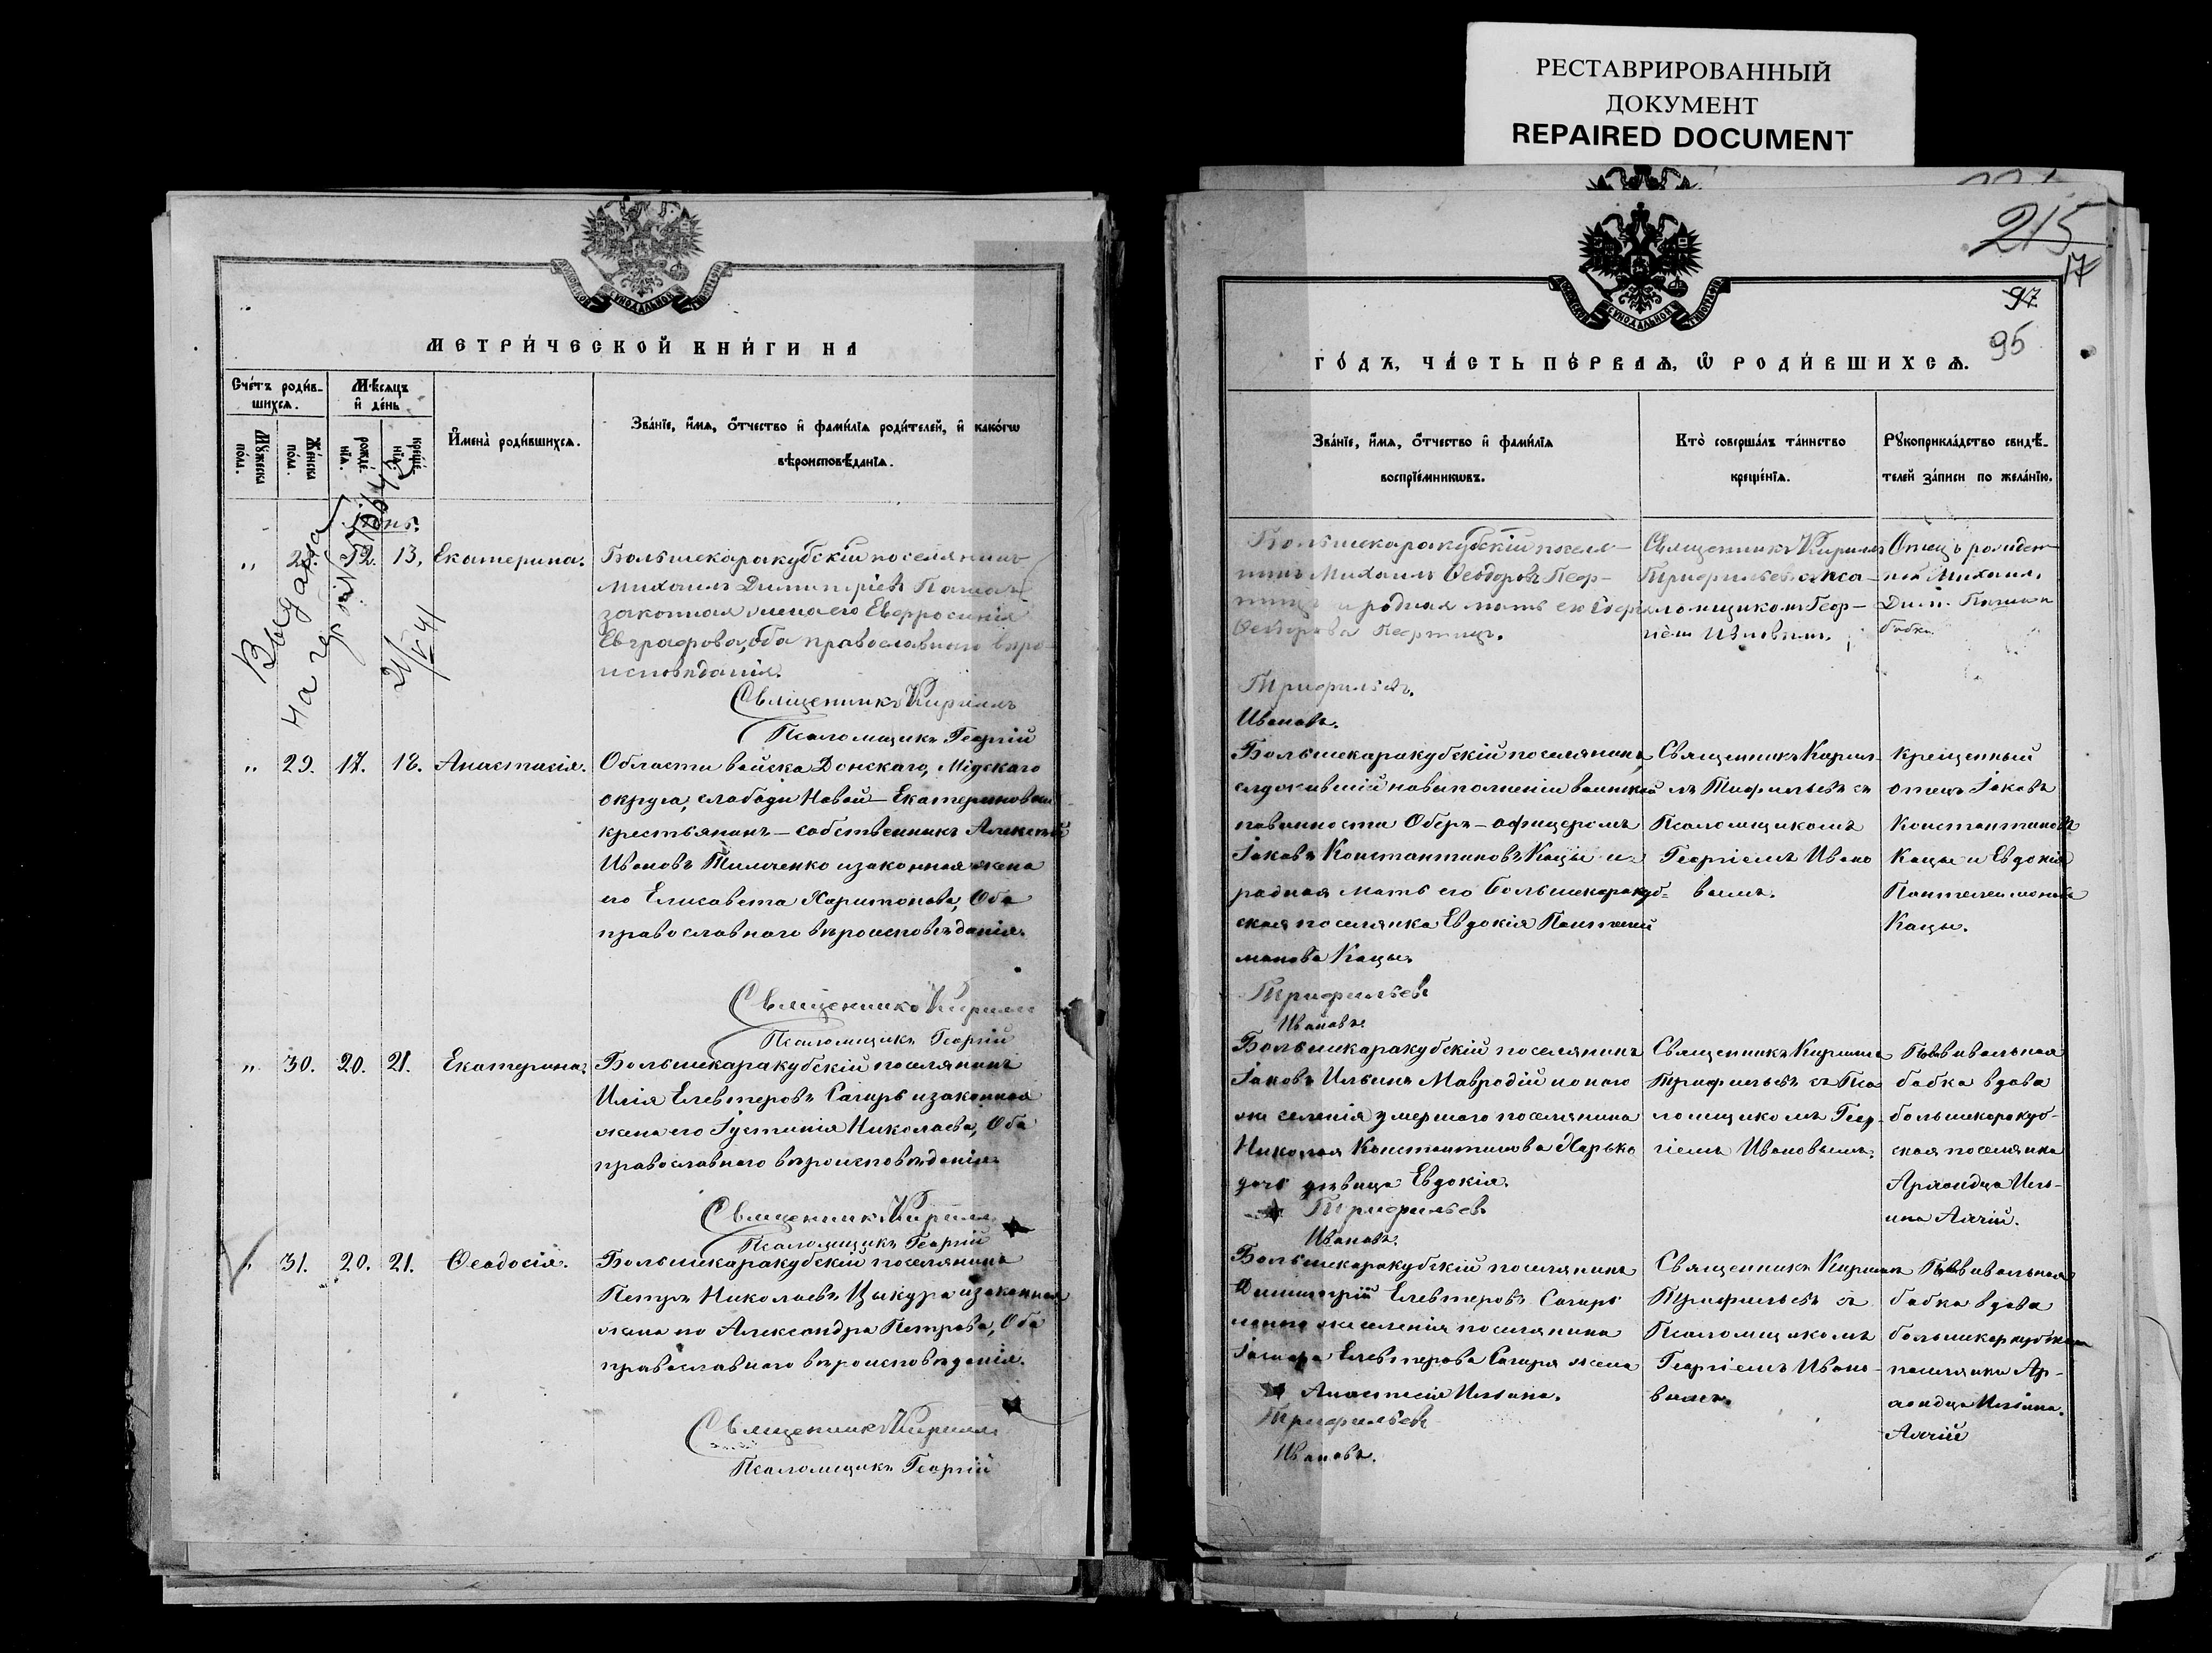 РЕСТАВРИРОВАННЫЙ
ДОКУМЕНТ
REPAIRED DOCUMENT
МЕТРИ́ЧЕСКОЙ КНИ́ГИ НА
Сче́тъ роди́в-
шихсѧ.
Мꙋжеска
пола.
Же́нска
по́ла.
Мѣ́сѧцъ
и҆ де́нь
рожде́-
нїѧ.
креще́-
нїѧ.
И҆мена̀ роди́вшихсѧ.
Зва́нїе, и҆́мѧ, ѻ҆́тчество и҆ фами́лїѧ роди́телей, и҆ како́гѡ
вѣроисповѣ́данїѧ.
Выдана
21/V 41
Іюнь.
" 28. 12. 13. Екатерина.
Большекаракубскій поселянинъ
Михаилъ Димитріевъ
законная жена его Евфросинія
Евграфова, оба православнаго вѣро-
исповѣданія.
Священникъ Кириллъ
Псаломщикъ Георгій
" 29. 17. 18. Анастасія.
Области войска Донскаго, Міускаго
округа, слободы Новой-Екатериновки
крестьянинъ-собственникъ Алексѣй
Ивановъ Тимченко и законная жена
его Елисавета Харитонова, Оба
православнаго вѣроисповѣданія.
Священникъ Кириллъ
Псаломщикъ Георгій
" 30. 20. 21. Екатерина.
Большекаракубскій поселянинъ
Илія Елевтеровъ Сагиръ и законная
жена его Іустинія Николаева, Оба
православнаго вѣроисповѣданія.
Священникъ Кириллъ
Псаломщикъ Георгій
" 31. 20. 21. Ѳеодосія.
Большекаракубскій поселянинъ
Петръ Николаевъ Цыкура и законная
жена его Александра Петрова, Оба
православнаго вѣроисповѣданія.
Священникъ Кириллъ
Псаломщикъ Георгій
215
17
97
95
ГО́ДЪ, ЧА́СТЬ ПЕ́РВАѦ, Ѡ҆ РОДИ́ВШИХСѦ.
Зва́нїе, и҆́мѧ, ѻ҆́тчество и҆ фами́лїѧ
воспрїе́мникѡвъ.
Кто̀ соверша́лъ та́инство
креще́нїѧ.
Рꙋкоприкла́дство свидѣ́-
телей за́писи по жела́нїю.
Большекаракубскій поселя-
нинъ Михаилъ Ѳеодоровъ
и родная мать его
Трифильевъ.
Ивановъ.
Священникъ Кириллъ
Трифильевъ съ пса-
ломщикомъ Геор-
гіемъ Ивановымъ.
Отецъ
Михаилъ
Дим.
Большекаракубскій поселянинъ
служившій на выполненіи воинской
повинности Оберъ-офицеромъ
Іаковъ Константиновъ Кацы и
родная мать его большекаракуб-
ская поселянка Евдокія Пантелей
монова Кацы.
Трифильевъ
Ивановъ
Священникъ Кирил-
лъ Трифильевъ съ
Псаломщикомъ
Георгіемъ Ивано
вымъ.
Крещенный
отецъ Іаковъ
Константиновъ
Кацы и Евдокія
Пантелеимонова
Кацы.
Большекаракубскій поселянинъ
Іаковъ Ильинъ Мавродій и того
же селенія умершаго поселянина
Николая Константинова Харько
дочь дѣвица Евдокія.
Трифильевъ
Ивановъ.
Священникъ Кириллъ
Трифильевъ съ Пса
ломщикомъ Геор-
гіемъ Ивановымъ.
Повивальная
бабка вдова
большекаракуб-
ская поселянка
Иль-
ина
Большекаракубскій поселянинъ
Димитрій Елевтеровъ Сагиръ
и того же селенія поселянина
Елевтерова Сагиря жена
Анастасія Ильина.
Трифильевъ
Ивановъ.
Священникъ Кириллъ
Трифильевъ съ
Псаломщикомъ
Георгіемъ Ивано-
вымъ.
Повивальная
бабка вдова
большекаракубская
поселянка
Ильина